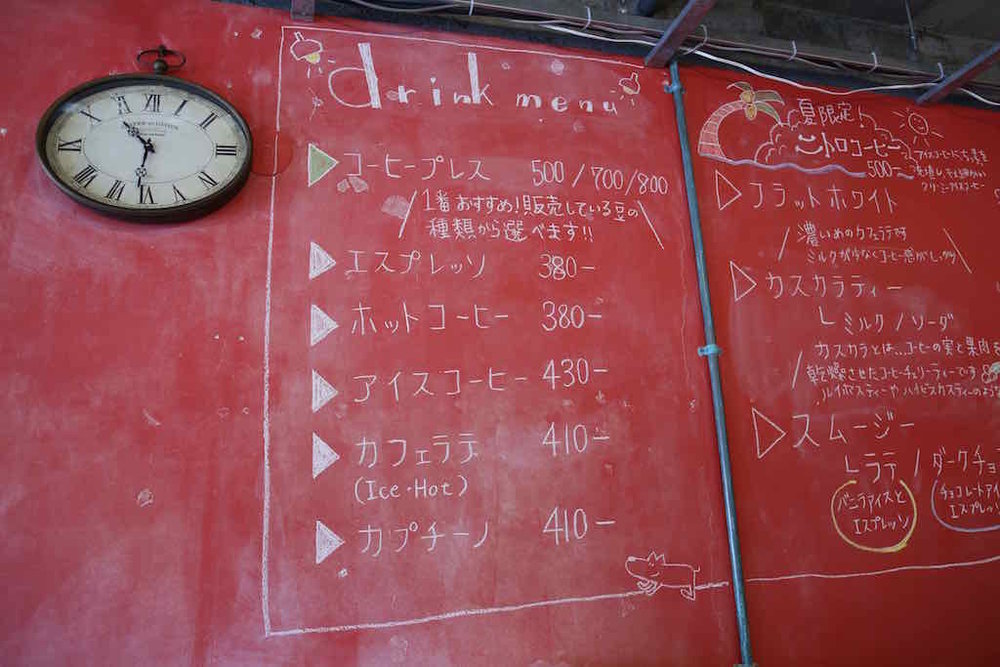 drink menu
コーヒープレス 500/700/800
1番おすすめ!販売している豆の
種類から選べます!!
エスプレッソ 380-
ホットコーヒー 380-
アイスコーヒー 430-
カフェラテ 410-
(Ice・Hot)
カプチーノ 410-
夏限定!
ニトロコーヒー
500-
アイスコーヒーに
クリーミーアイスコーヒー
フラットホワイト
濃いめのカフェラテです
ミルクが少なくコーヒー感が
カスカラティー
ミルク/ソーダ
カスカラとは…コーヒーの実と果肉を
乾燥させたコーヒーチェリーティーです
ルイボスティーやハイビスカスティーのよう
スムージー
ラテ/ダークチョ
バニラアイスと
エスプレッソ
チョコレートアイ
エスプレッソ